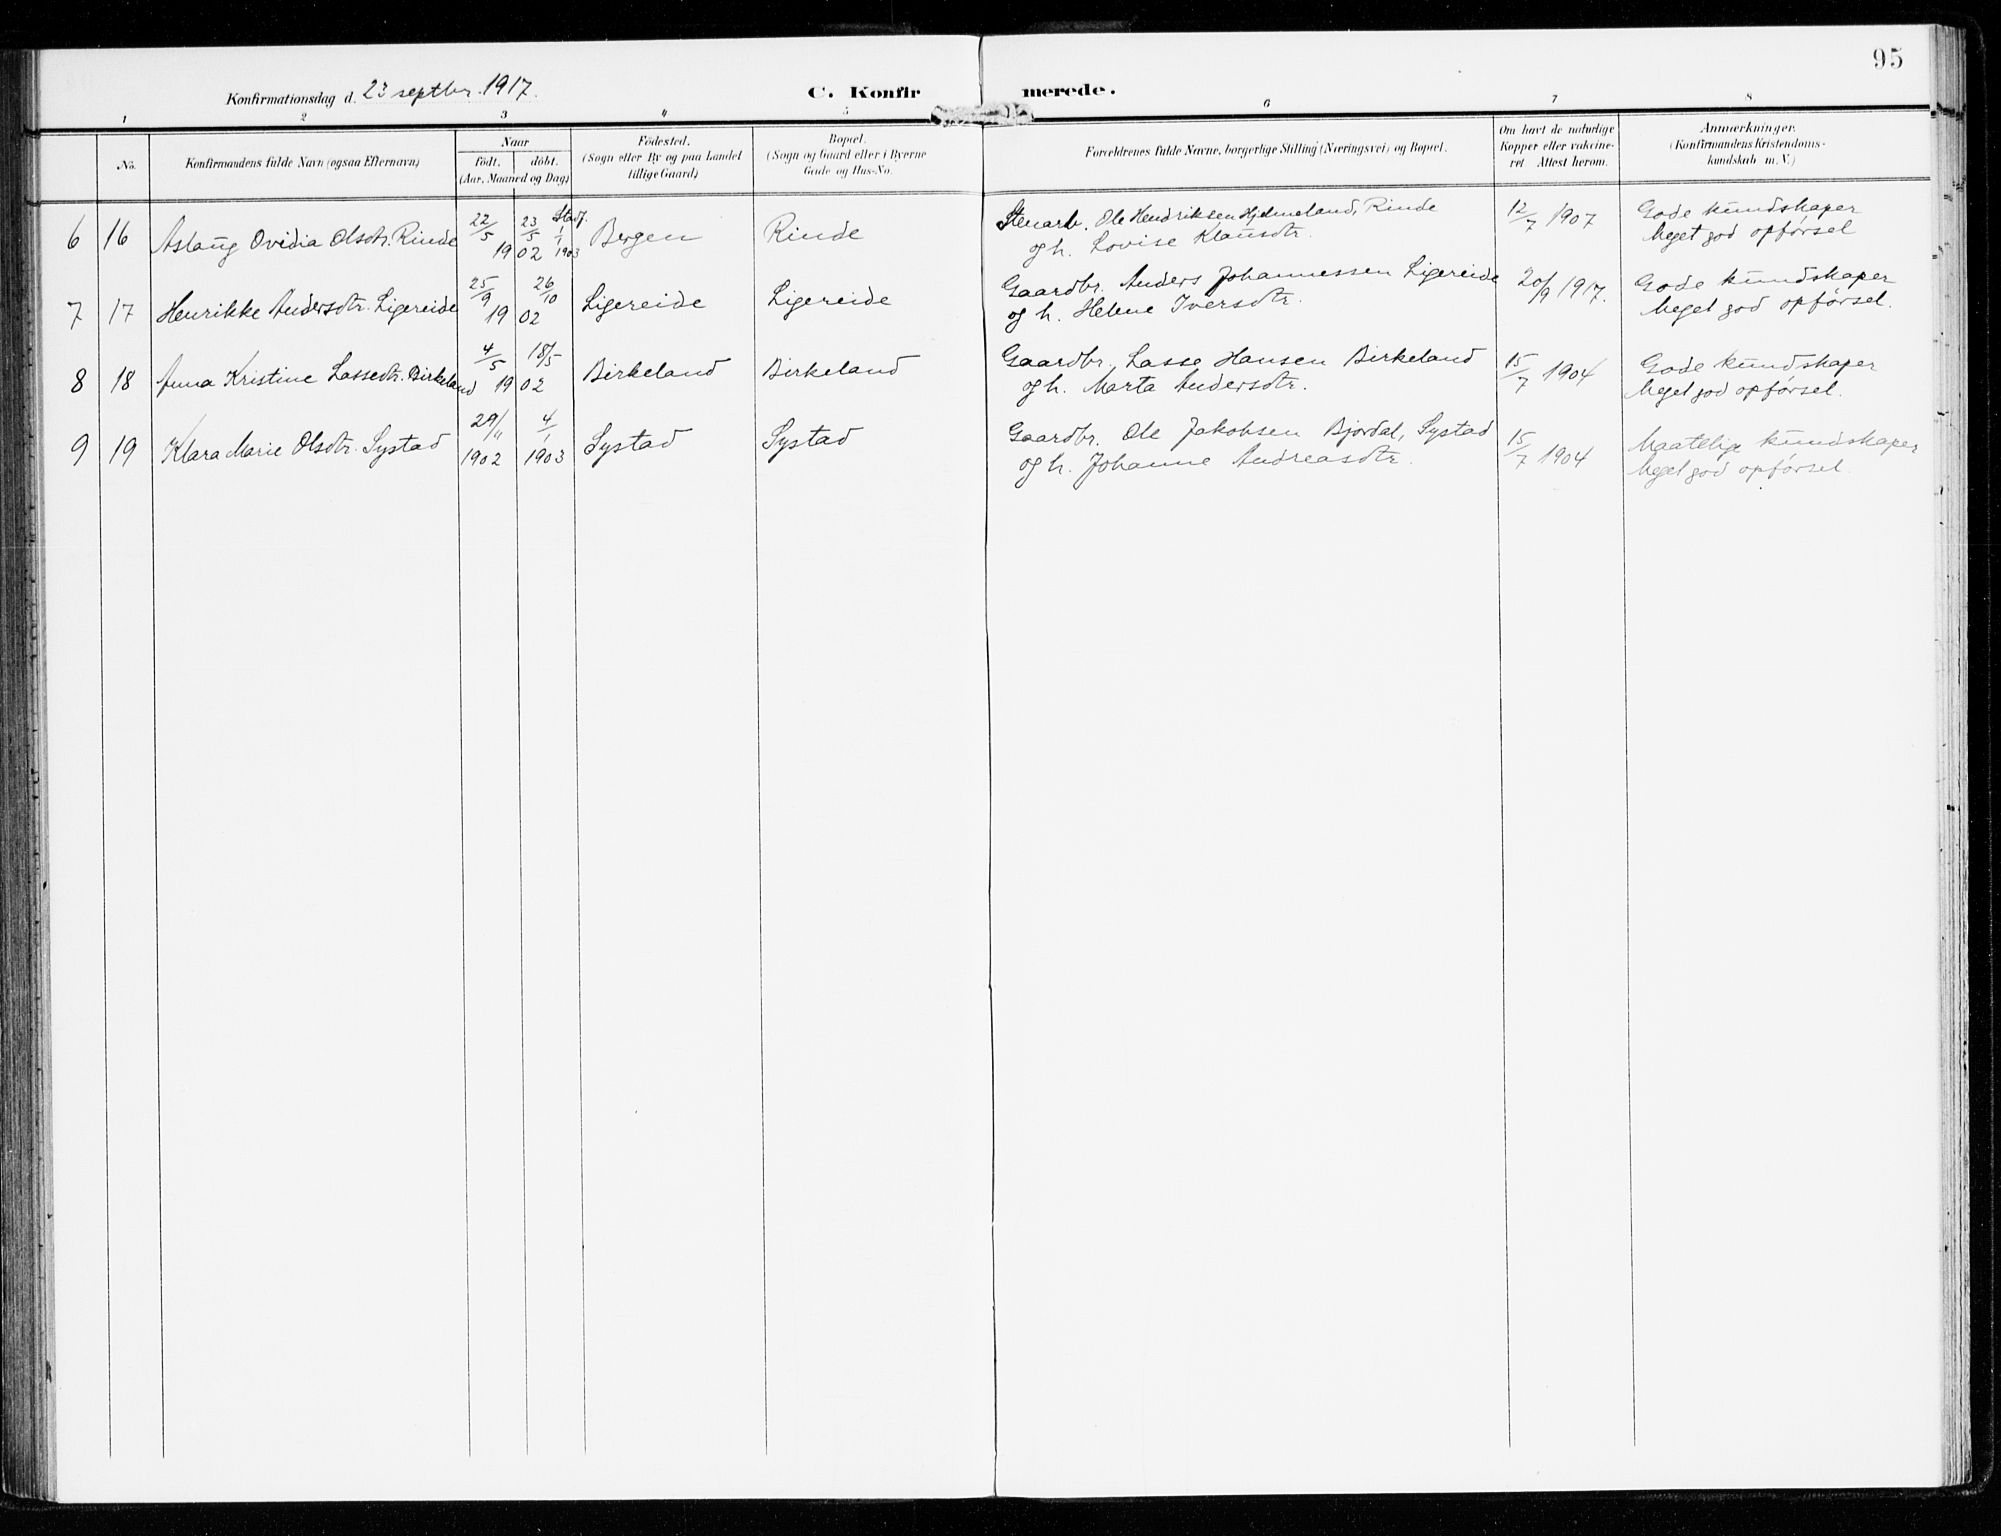 95
Konfirmationsdag d. 23 septbr. 1917.
C. Konfirmerede.
1 2 3 4 5 6 7 8
No.
Konfirmandens fulde Navn (ogsaa Efternavn)
Naar
födt. döbt.
(Aar, Maaned og Dag)
Födested.
(Sogn eller By og paa Landet
tillige Gaard)
Bopæl.
(Sogn og Gaard eller i Byerne
Gade og Hus-No.
Forældrenes fulde Navne, borgerlige Stilling (Næringsvei) og Bopæl.
Om havt de naturlige
Kopper eller vakcine-
ret Attest herom.
Anmærkninger.
(Konfirmandens Kristendoms-
kundskab m. V.)
6 16 Aslaug Ovidia Olsdtr. Rinde 22/5 1902 23/5 Stadf. 1/1 1903 Bergen Rinde Stenarb. Ole Hendriksen Hjelmeland, Rinde 12/7 1907 Gode kundskaper
og h. Lovise Klausdtr. Meget god opførsel
7 17 Henrikke Andersdtr. Ligereide 25/9 26/10 1902 Ligereide Ligereide Gaardbr. Anders Johannessen Ligereide 20/9 1917. Gode kundskaper
og h. Helene Iversdtr. Meget god opførsel.
8 18 Anna Kristine Lassedtr. Birkeland 4/5 18/5 1902 Birkeland Birkeland Gaardbr. Lasse Hansen Birkeland 15/7 1904 Gode kundskaper
og h. Marta Andersdtr. Meget god opførsel.
9 19 Klara Marie Olsdtr. Systad 29/11 1902 4/1 1903 Systad Systad Gaardbr. Ole Jakobsen Bjordal, Systad 15/7 1904 Maatelige kundskaper
og h. Johanne Andreasdtr. Meget god opførsel.